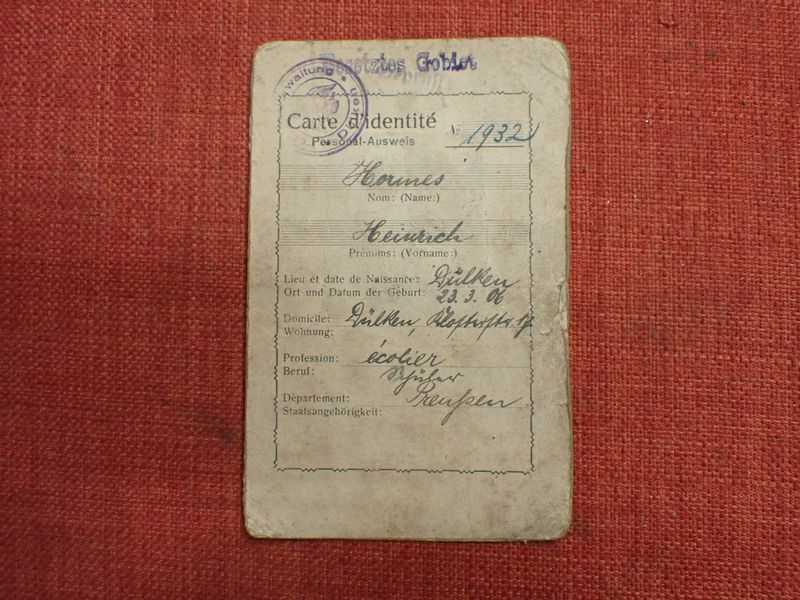 Besetztes Gebiet
waltung Dülken
Carte d'identité
Nº 1932
Personal-Ausweis
Hormes
Nom: (Name:)
Heinrich
Prénoms: (Vorname:)
Lieu et date de Naissance: Dülken
Ort und Datum der Geburt: 23.3.06
Domicile: Dülken, Klosterstr. 17
Wohnung:
Profession: écolier
Beruf: Schüler
Département: Preußen
Staatsangehörigkeit: